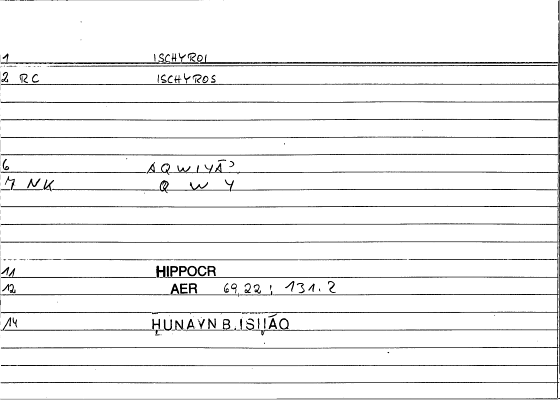 1 ISCHYROI
2 RC ISCHYROS
6 AQWIYĀʾ
7 NK Q W Y
11 HIPPOCR
12 AER 69,22; 131.2
14 ḤUNAYN B. ISḤĀQ